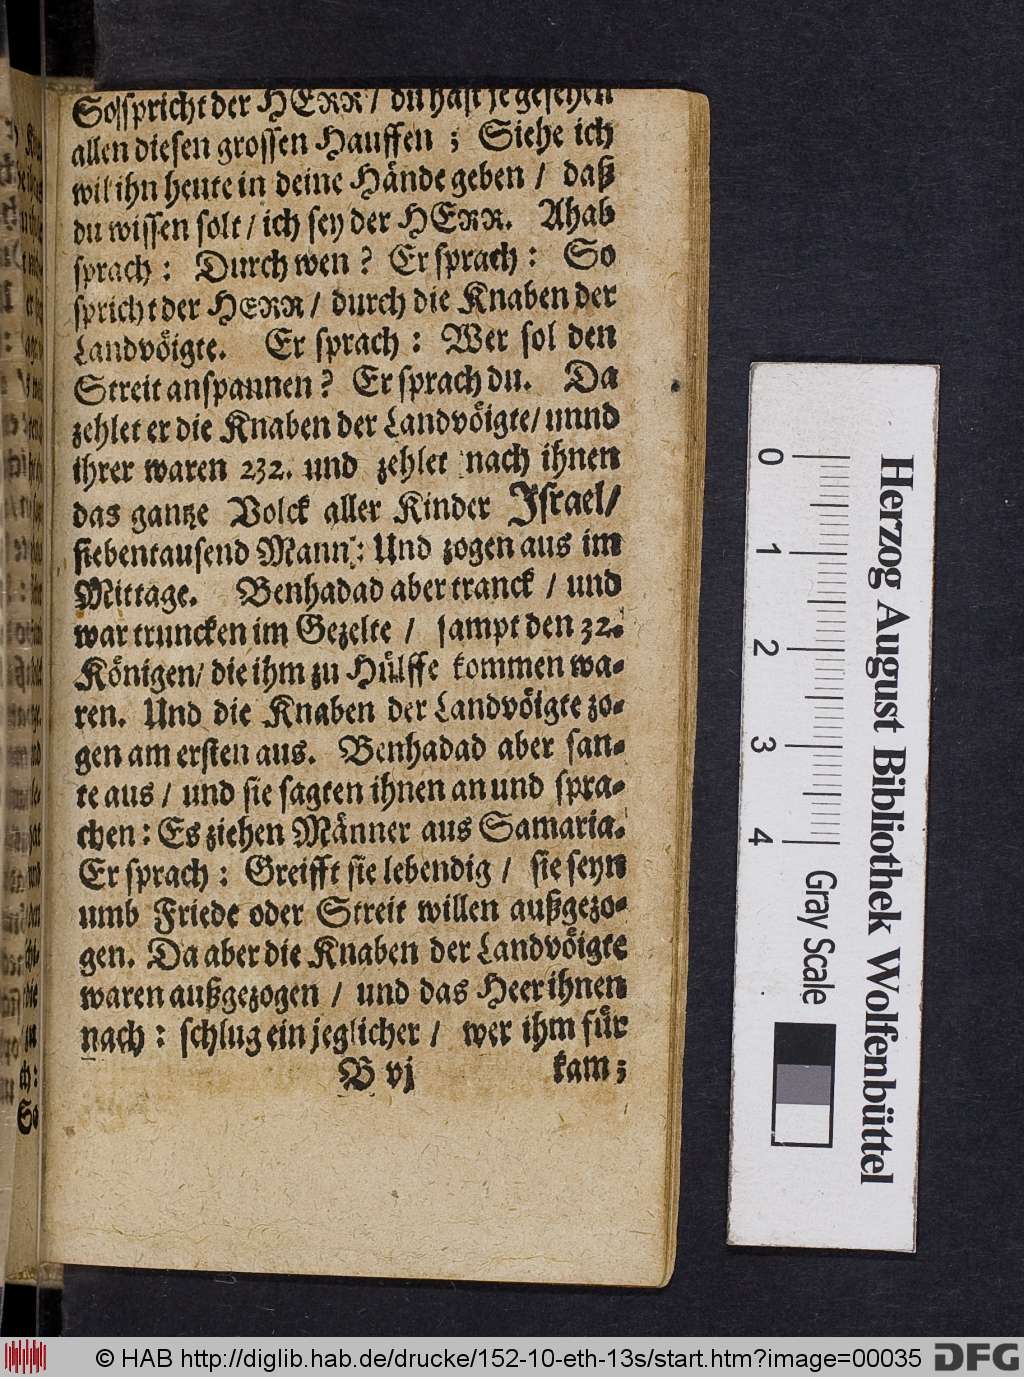 So spricht der HERR / du hast je gesehen
allen diesen grossen Hauffen ; Siehe ich
wil ihn heute in deine Hände geben / daß
du wissen solt / ich sey der HERR. Ahab
sprach : Durch wen ? Er sprach : So
spricht der HERR / durch die Knaben der
Landvöigte. Er sprach : Wer sol den
Streit anspannen ? Er sprach du. Da
zehlet er die Knaben der Landvöigte / unnd
ihrer waren 232. und zehlet nach ihnen
das gantze Volck aller Kinder Israel /
siebentausend Mann : Und zogen aus im
Mittage. Benhadad aber tranck / und
war truncken im Gezelte / sampt den 32.
Königen / die ihm zu Hülffe kommen wa-
ren. Und die Knaben der Landvöigte zo-
gen am ersten aus. Benhadad aber san-
te aus / und sie sagten ihnen an und spra-
chen : Es ziehen Männer aus Samaria.
Er sprach : Greifft sie lebendig / sie seyn
umb Friede oder Streit willen außgezo-
gen. Da aber die Knaben der Landvöigte
waren außgezogen / und das Heer ihnen
nach : schlug ein jeglicher / wer ihm für
B vj kam ;
So
0 1 2 3 4
Gray Scale
Herzog August Bibliothek Wolfenbüttel
© HAB http://diglib.hab.de/drucke/152-10-eth-13s/start.htm?image=00035
DFG